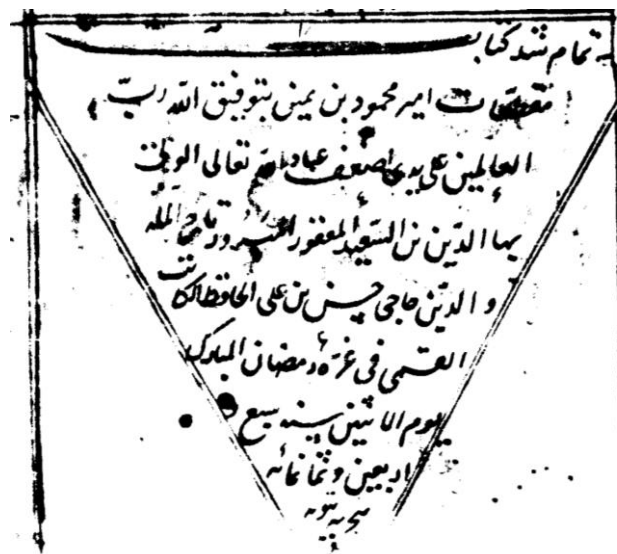 تمام شد کتاب
مقطعات امیر محمود بن یمین بتوفیق الله رب
العالمین علی یدی اضعف عباد الله تعالی
بها الدین بن السعید المغفور تاج المله
و الدین حاجی حسن بن علی الحافظ الکاتب
القمی فی غره رمضان المبارک
یوم الاثنین سنه سبع
اربعین و ثمانمائه
هجریه